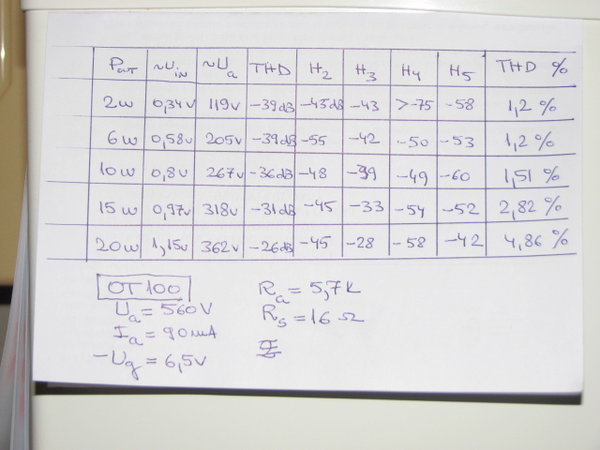 Pout ~Uin ~Ua THD H2 H3 H4 H5 THD %
2w 0,34v 119v -39dB -45dB -43 >-75 -58 1,2 %
6w 0,58v 205v -39dB -55 -42 -50 -53 1,2 %
10w 0,8v 267v -36dB -48 -39 -49 -60 1,51 %
15w 0,97v 318v -31dB -45 -33 -54 -52 2,82 %
20w 1,15v 362v -26dB -45 -28 -58 -42 4,86 %
OT100
Ua = 560V
Ia = 90mA
-Ug = 6,5v
Ra = 5,7K
Rs = 16 Ω